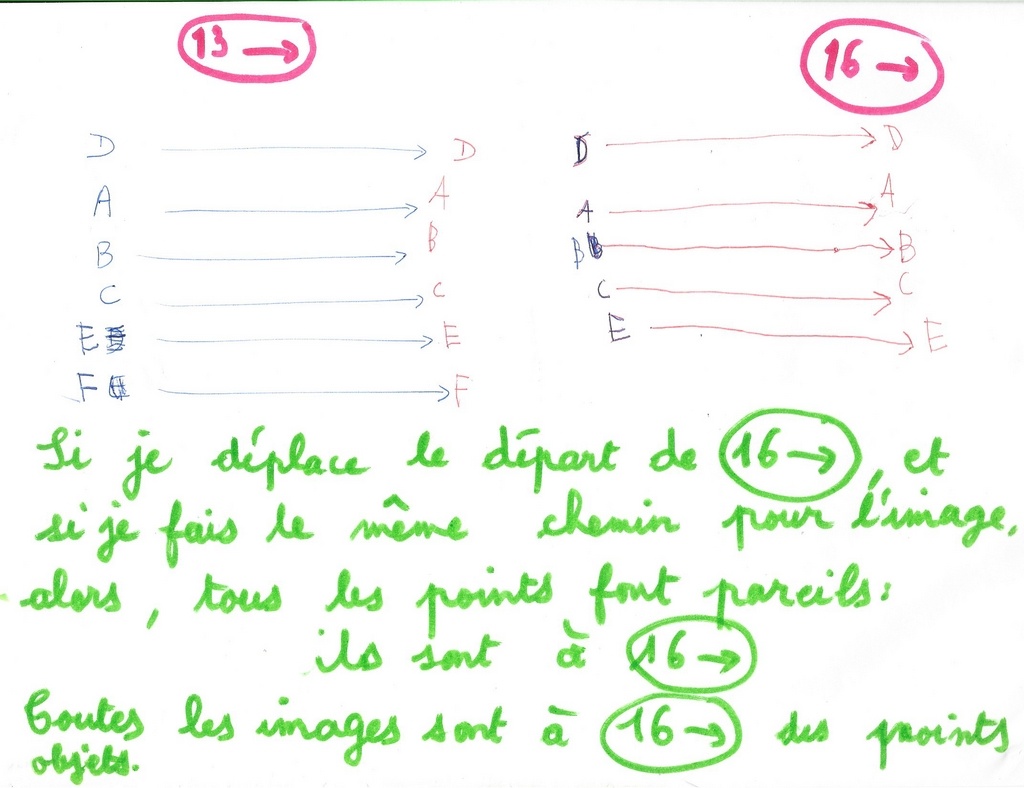 13 → 16 →
D → D D → D
A → A A → A
B → B B → B
C → C C → C
E → E E → E
F → F
Si je déplace le départ de 16 →, et
si je fais le même chemin pour l'image,
alors, tous les points font pareils:
ils sont à 16 →
Toutes les images sont à 16 → des points
objets.